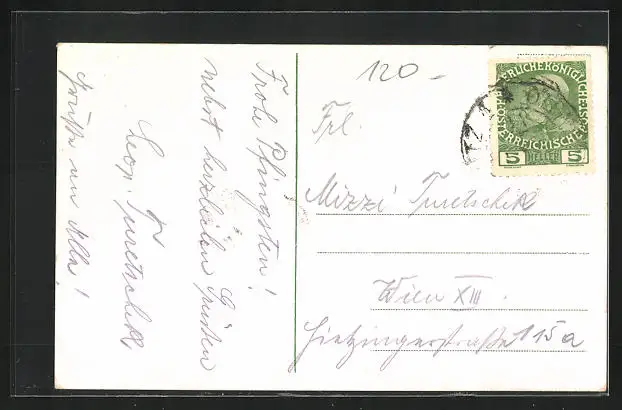 Frohe Pfingsten!
nebst herzlichen Grüßen
Leop. Turetschek
Grüße an Alle!
120 –
Frl.
Mizzi Turetschek
Wien XIII.
Hietzingerstraße 115a
KAISERLICHE KÖNIGLICHE
ÖSTERREICHISCHE
5 HELLER 5